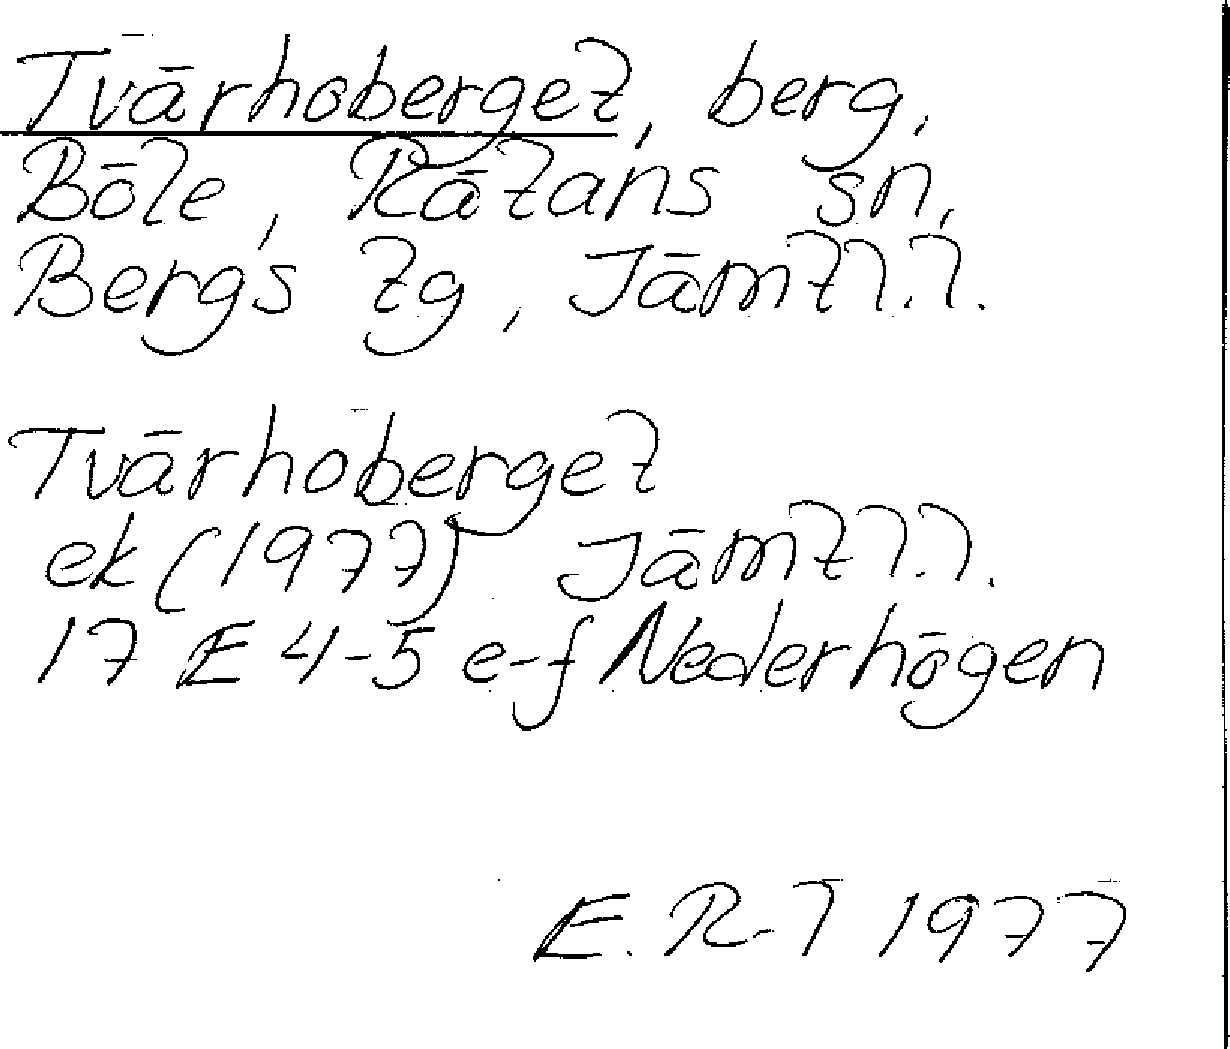 Tvärhoberget, berg,
Böle, Rätans sn,
Bergs tg, Jämtl.l.
Tvärhoberget
ek (1977) Jämtl.l.
17 E 4-5 e-f Nederhögen
E. R-T 1977